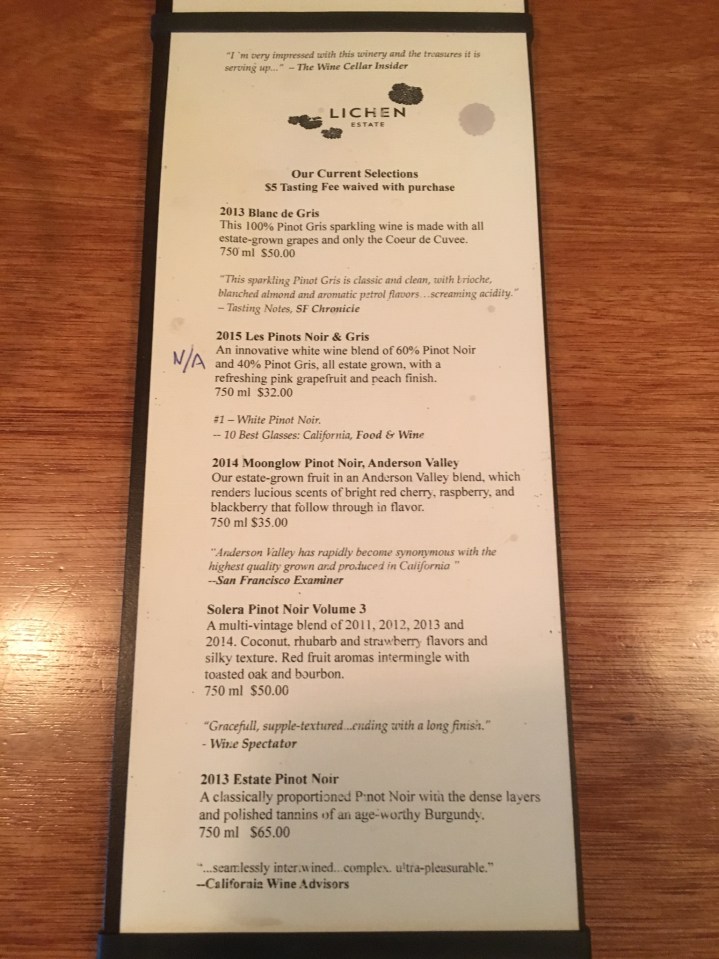 "I'm very impressed with this winery and the treasures it is
serving up..." – The Wine Cellar Insider
LICHEN
ESTATE
Our Current Selections
$5 Tasting Fee waived with purchase
2013 Blanc de Gris
This 100% Pinot Gris sparkling wine is made with all
estate-grown grapes and only the Coeur de Cuvee.
750 ml $50.00
"This sparkling Pinot Gris is classic and clean, with brioche,
blanched almond and aromatic petrol flavors...screaming acidity."
– Tasting Notes, SF Chronicie
2015 Les Pinots Noir & Gris
N/A An innovative white wine blend of 60% Pinot Noir
and 40% Pinot Gris, all estate grown, with a
refreshing pink grapefruit and peach finish.
750 ml $32.00
#1 – White Pinot Noir.
-- 10 Best Glasses: California, Food & Wine
2014 Moonglow Pinot Noir, Anderson Valley
Our estate-grown fruit in an Anderson Valley blend, which
renders lucious scents of bright red cherry, raspberry, and
blackberry that follow through in flavor.
750 ml $35.00
"Anderson Valley has rapidly become synonymous with the
highest quality grown and produced in California "
--San Francisco Examiner
Solera Pinot Noir Volume 3
A multi-vintage blend of 2011, 2012, 2013 and
2014. Coconut, rhubarb and strawberry flavors and
silky texture. Red fruit aromas intermingle with
toasted oak and bourbon.
750 ml $50.00
"Gracefull, supple-textured...ending with a long finish."
- Wine Spectator
2013 Estate Pinot Noir
A classically proportioned Pinot Noir with the dense layers
and polished tannins of an age-worthy Burgundy.
750 ml $65.00
"...seamlessly intertwined.. complex. ultra-pleasurable."
--California Wine Advisors